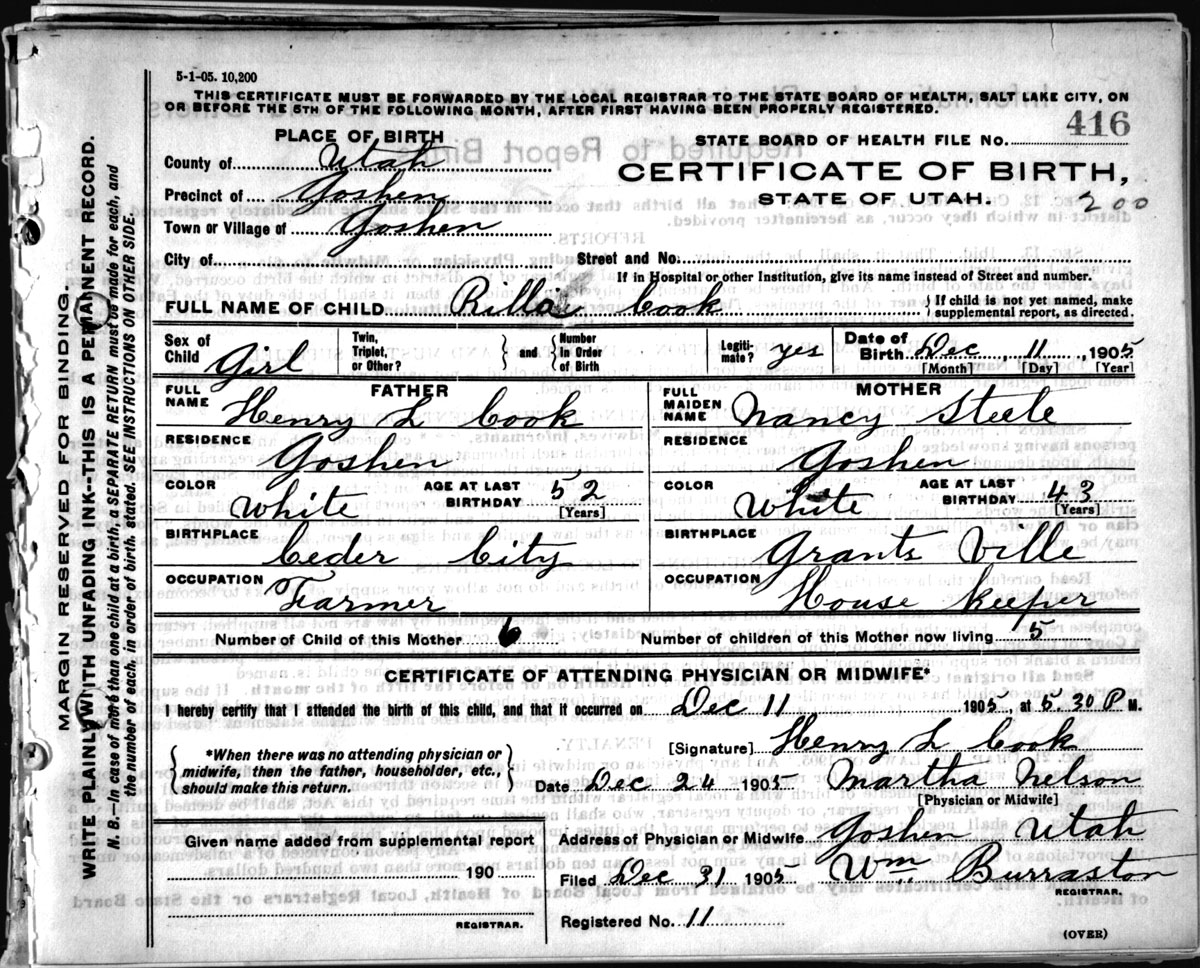 5-1-05. 10,200
THIS CERTIFICATE MUST BE FORWARDED BY THE LOCAL REGISTRAR TO THE STATE BOARD OF HEALTH, SALT LAKE CITY, ON
OR BEFORE THE 5TH OF THE FOLLOWING MONTH, AFTER FIRST HAVING BEEN PROPERLY REGISTERED.
PLACE OF BIRTH
STATE BOARD OF HEALTH FILE NO. 416
County of Utah
CERTIFICATE OF BIRTH,
Precinct of Goshen
STATE OF UTAH. 200
Town or Village of Goshen
City of Street and No.
If in Hospital or other Institution, give its name instead of Street and number.
FULL NAME OF CHILD Rilla Cook } If child is not yet named, make supplemental report, as directed.
Sex of Child Girl Twin, Triplet, or Other? } and { Number in Order of Birth Legiti-mate? yes Date of Birth Dec, 11, 1905
[Month] [Day] [Year]
FATHER MOTHER
FULL NAME Henry L Cook FULL MAIDEN NAME Nancy Steele
RESIDENCE Goshen RESIDENCE Goshen
COLOR White AGE AT LAST BIRTHDAY 52 [Years] COLOR White AGE AT LAST BIRTHDAY 43 [Years]
BIRTHPLACE Ceder City BIRTHPLACE Grants Ville
OCCUPATION Farmer OCCUPATION House Keeper
Number of Child of this Mother 6 Number of children of this Mother now living 5
CERTIFICATE OF ATTENDING PHYSICIAN OR MIDWIFE*
I hereby certify that I attended the birth of this child, and that it occurred on Dec 11 1905, at 5.30 P M.
{ *When there was no attending physician or midwife, then the father, householder, etc., should make this return. }
[Signature] Henry L Cook
Date Dec 24 1905 Martha Nelson
[Physician or Midwife]
Given name added from supplemental report
190
REGISTRAR.
Address of Physician or Midwife Goshen Utah
Filed Dec 31 1905 Wm. Burraston
REGISTRAR.
Registered No. 11
(OVER)
MARGIN RESERVED FOR BINDING.
WRITE PLAINLY WITH UNFADING INK--THIS IS A PEMAINENT RECORD.
N. B.—In case of more than one child at a birth, a SEPARATE RETURN must be made for each, and
the number of each, in order of birth, stated. SEE INSTRUCTIONS ON OTHER SIDE.